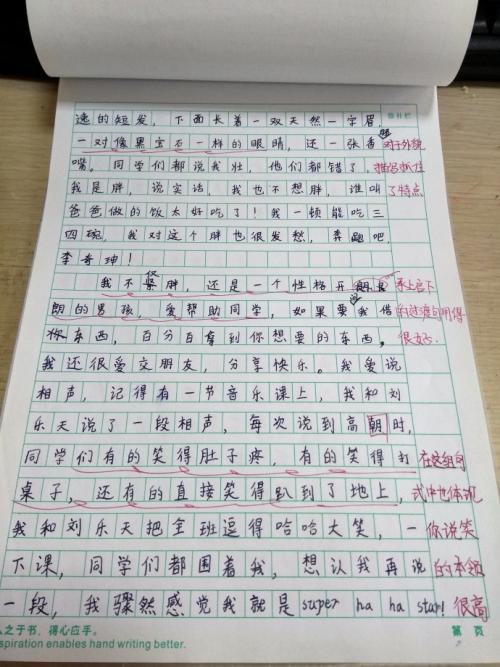 逸的短发，下面长着一双天然一字眉，
一对像黑宝石一样的眼睛，还一张香
嘴。同学们都说我壮，他们都错了，
我是胖，说实话，我也不想胖，谁叫
爸爸做的饭太好吃了！我一顿能吃三
四碗，我对这个胖也很发愁，奔跑吧，
李奇珅！
我不仅胖，还是一个性格开朗
朗的男孩，爱帮助同学，如果要我借
你东西，百分百拿到你想要的东西，
我还很爱交朋友，分享快乐。我爱说
相声，记得有一节音乐课上，我和刘
乐天说了一段相声，每次说到高朝时，
同学们有的笑得肚子疼，有的笑得打
桌子，还有的直接笑得趴到了地上，
我和刘乐天把全班逗得哈哈大笑，一
下课，同学们都围着我，想认我再说
一段，我骤然感觉我就是super ha ha star!
修补栏
对于外貌
描写抓住
了特点
承上启下
的过渡句用得
很好.
在这组句
式中也体现
你说笑
的本领
很高
人之于书，得心应手。
spiration enables hand writing better.
第 页